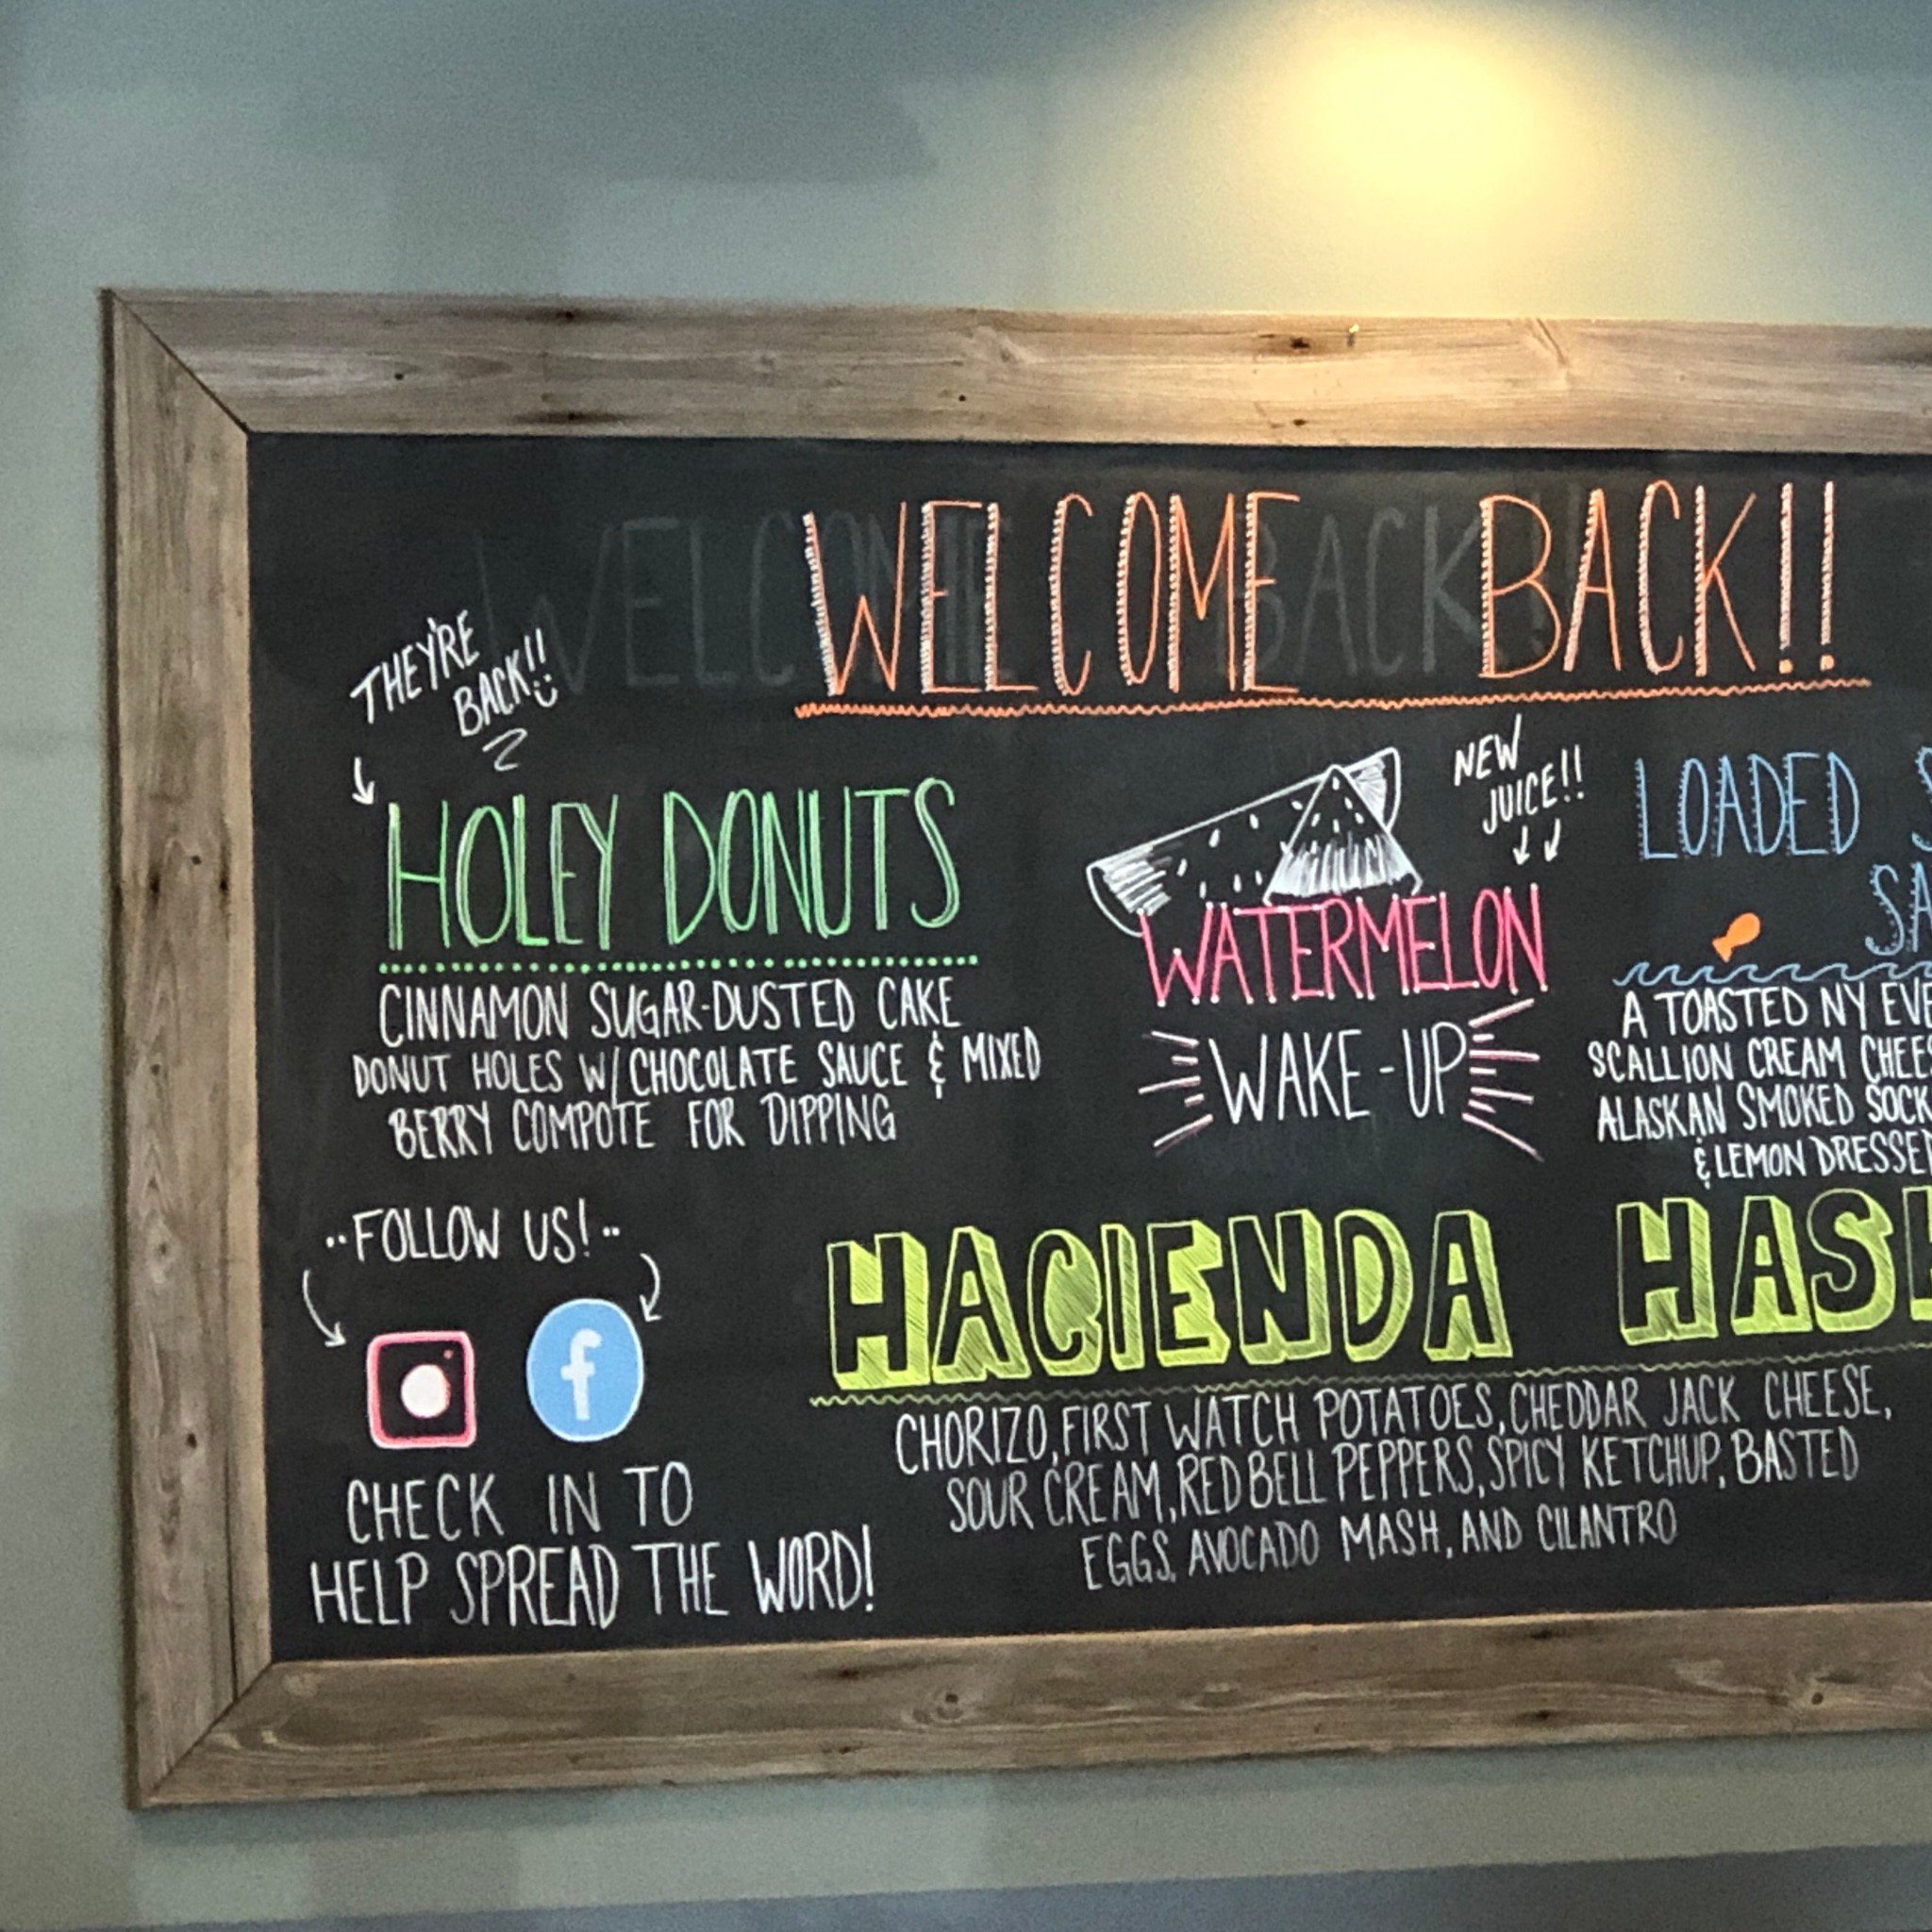 WELCOME BACK!!
THEY'RE
BACK!!
HOLEY DONUTS
CINNAMON SUGAR-DUSTED CAKE
DONUT HOLES W/CHOCOLATE SAUCE & MIXED
BERRY COMPOTE FOR DIPPING
NEW
JUICE!!
WATERMELON
WAKE-UP
LOADED S
SA
A TOASTED NY EVE
SCALLION CREAM CHEES
ALASKAN SMOKED SOCK
& LEMON DRESSE
··FOLLOW US!··
f
CHECK IN TO
HELP SPREAD THE WORD!
HACIENDA HASH
CHORIZO, FIRST WATCH POTATOES, CHEDDAR JACK CHEESE,
SOUR CREAM, RED BELL PEPPERS, SPICY KETCHUP, BASTED
EGGS, AVOCADO MASH, AND CILANTRO